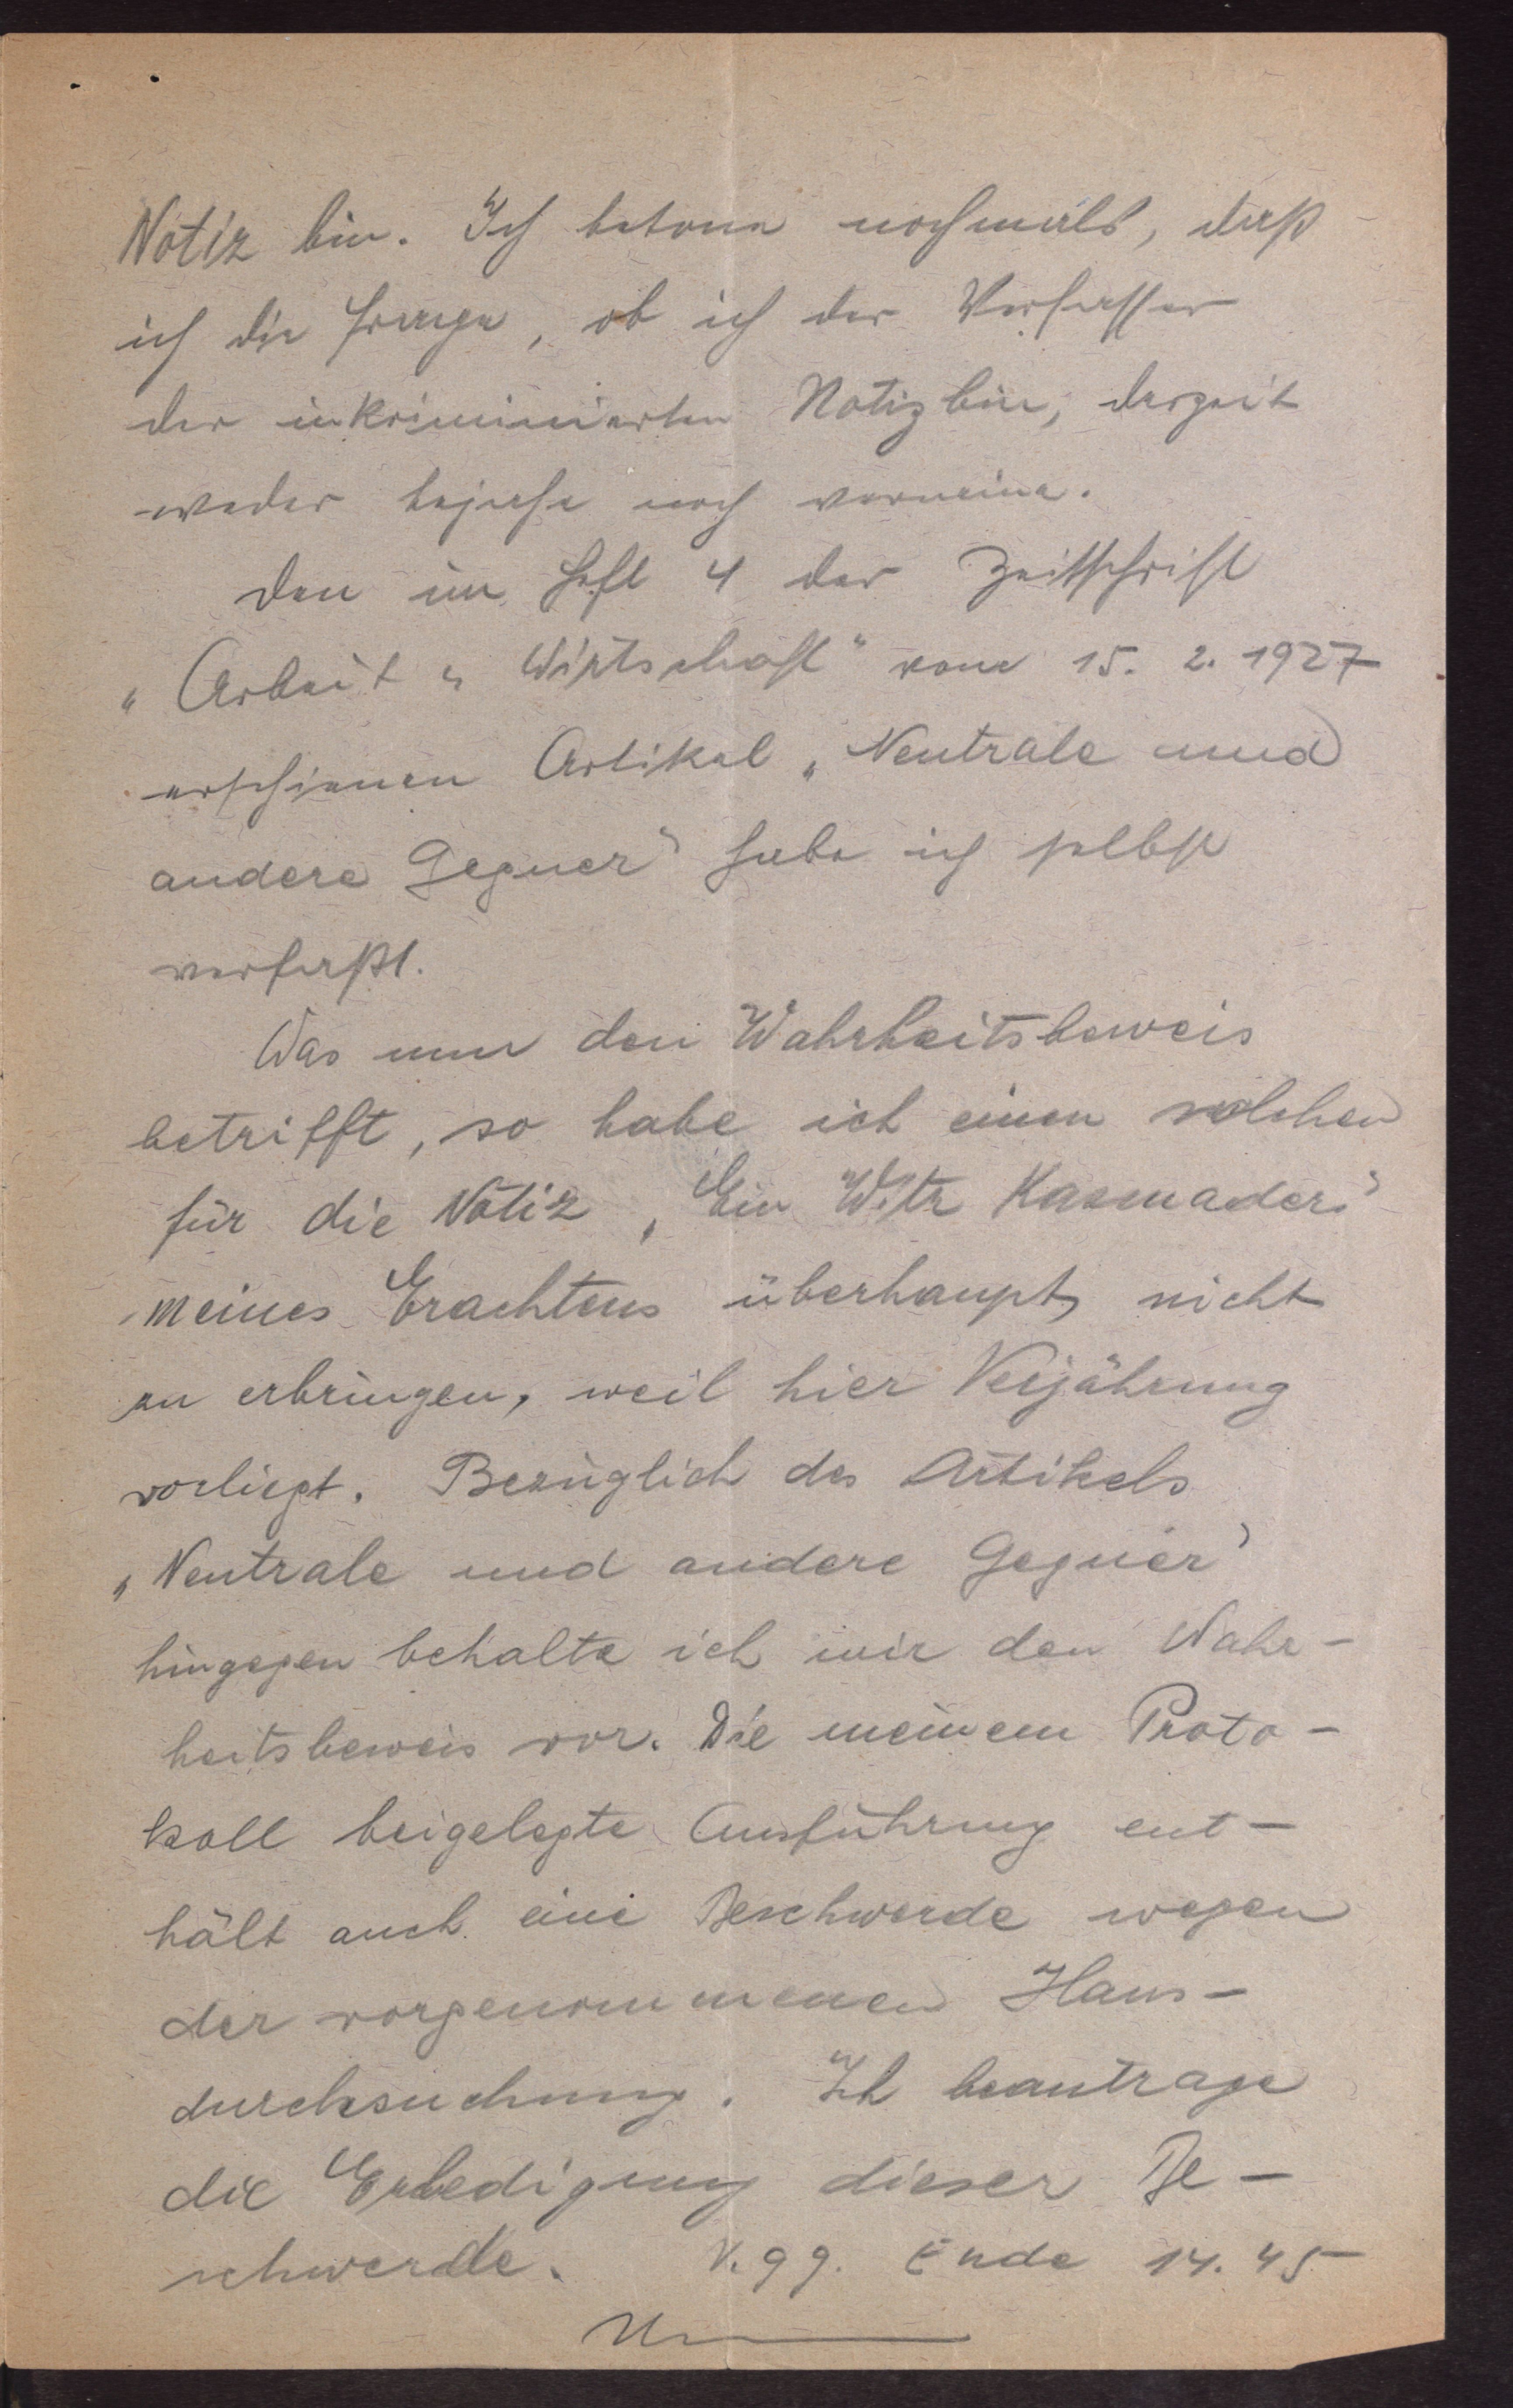 Notiz bin. Ich betone nochmals, daß
ich die Frage, ob ich der Verfasser
der inkriminierten Notiz bin, derzeit
weder bejahe noch verneine.
Den im Heft 4 der Zeitschrift
„Arbeit u Wirtschaft" vom 15. 2. 1927
erschienen Artikel „Neutrale und
andere Gegner" habe ich selbst
verfaßt.
Was nun den Wahrheitsbeweis
betrifft, so habe ich einen solchen
für die Notiz „Ein
meines Erachtens überhaupt nicht
zu erbringen, weil hier Verjährung
vorliegt. Bezüglich des Artikels
„Neutrale und andere Gegner"
hingegen behalte ich mir den Wahr-
heitsbeweis vor. Die meinem Proto-
koll beigelegte Ausführung ent-
hält auch eine Beschwerde wegen
der vorgenommenen Haus-
durchsuchung. Ich beantrage
die Erledigung dieser Be-
schwerde. V. g g. Ende 14.45